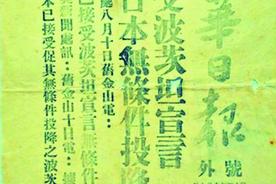 華日報
號外
受波茨坦宣言
日本無條件投降
八月十日舊金山電：
聞處訊：舊金山十日電：據
已接受波茨坦宣言無條件
本已接受促其無條件投降之波茨